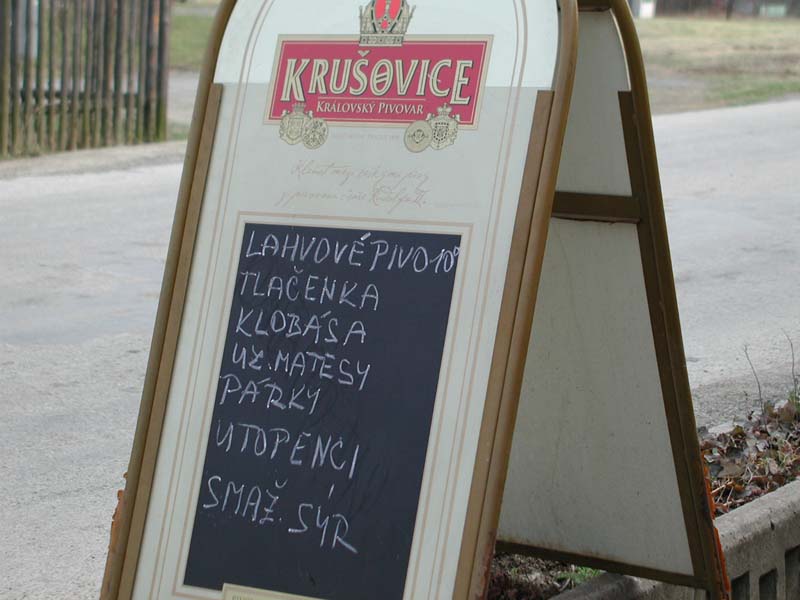 KRUŠOVICE
KRÁLOVSKÝ PIVOVAR
LAHVOVÉ PIVO 10°
TLAČENKA
KLOBÁSA
UZ. MATESY
PÁRKY
UTOPENCI
SMAŽ. SÝR